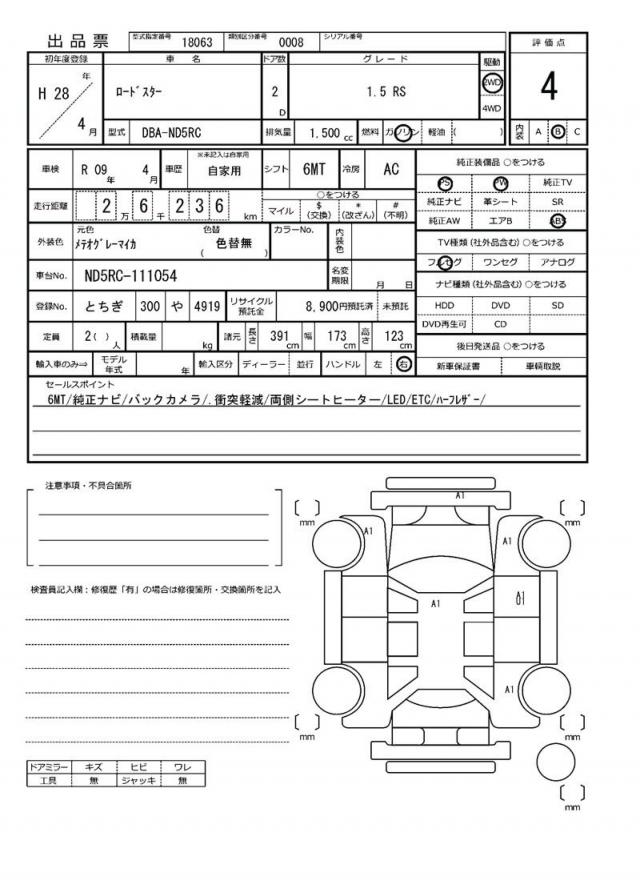 出品票 型式指定番号 18063 類別区分番号 0008 シリアル番号
初年度登録 車名 ドア数 グレード 駆動 評価点
H 28 年 4 月 ﾛｰﾄﾞｽﾀｰ 2 D 1.5 RS 2WD 4WD 4
型式 DBA-ND5RC 排気量 1.500 cc 燃料 ガソリン 軽油 ( ) 内装 A B C
車検 R 09 年 4 月 車歴 ※未記入は自家用 自家用 シフト 6MT 冷房 AC
走行距離 2 万 6 千 2 3 6 km
○をつける
マイル $ (交換) * (改ざん) # (不明)
外装色 元色 ﾒﾃｵｸﾞﾚｰﾏｲｶ 色替 ( 色替無 ) カラーNo. 内装色
車台No. ND5RC-111054 名変期限 月 日
登録No. とちぎ 300 や 4919 リサイクル預託金 8,900円預託済 未預託
定員 2( ) 人 積載量 kg 諸元 長さ 391 cm 幅 173 cm 高さ 123 cm
輸入車のみ⇒ モデル年式 年 輸入区分 ディーラー 並行 ハンドル 左 右
純正装備品 ○をつける
PS PW 純正TV
純正ナビ 革シート SR
純正AW エアB ABS
TV種類(社外品含む) ○をつける
フルセグ ワンセグ アナログ
ナビ種類(社外品含む) ○をつける
HDD DVD SD
DVD再生可 CD
後日発送品 ○をつける
新車保証書 車輌取説
セールスポイント
6MT/純正ナビ/バックカメラ/.衝突軽減/両側シートヒーター/LED/ETC/ﾊｰﾌﾚｻﾞｰ/
注意事項・不具合箇所
検査員記入欄：修復歴「有」の場合は修復箇所・交換箇所を記入
ドアミラー キズ ヒビ ワレ
工具 無 ジャッキ 無
A1
[ ] mm [ ] mm
A1 A1
A1
A1
U1
A1
[ ] mm [ ] mm
[ ] mm